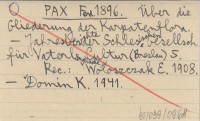 PAX Fed. 1896. Über die
Gliederung der Karpatenflora.
- Jahresbericht Schles. Gesellsch.
für Vaterl. Cultur (Breslau) 5.
Rec.: Wołoszczak E. 1908.
- Domin K. 1941.